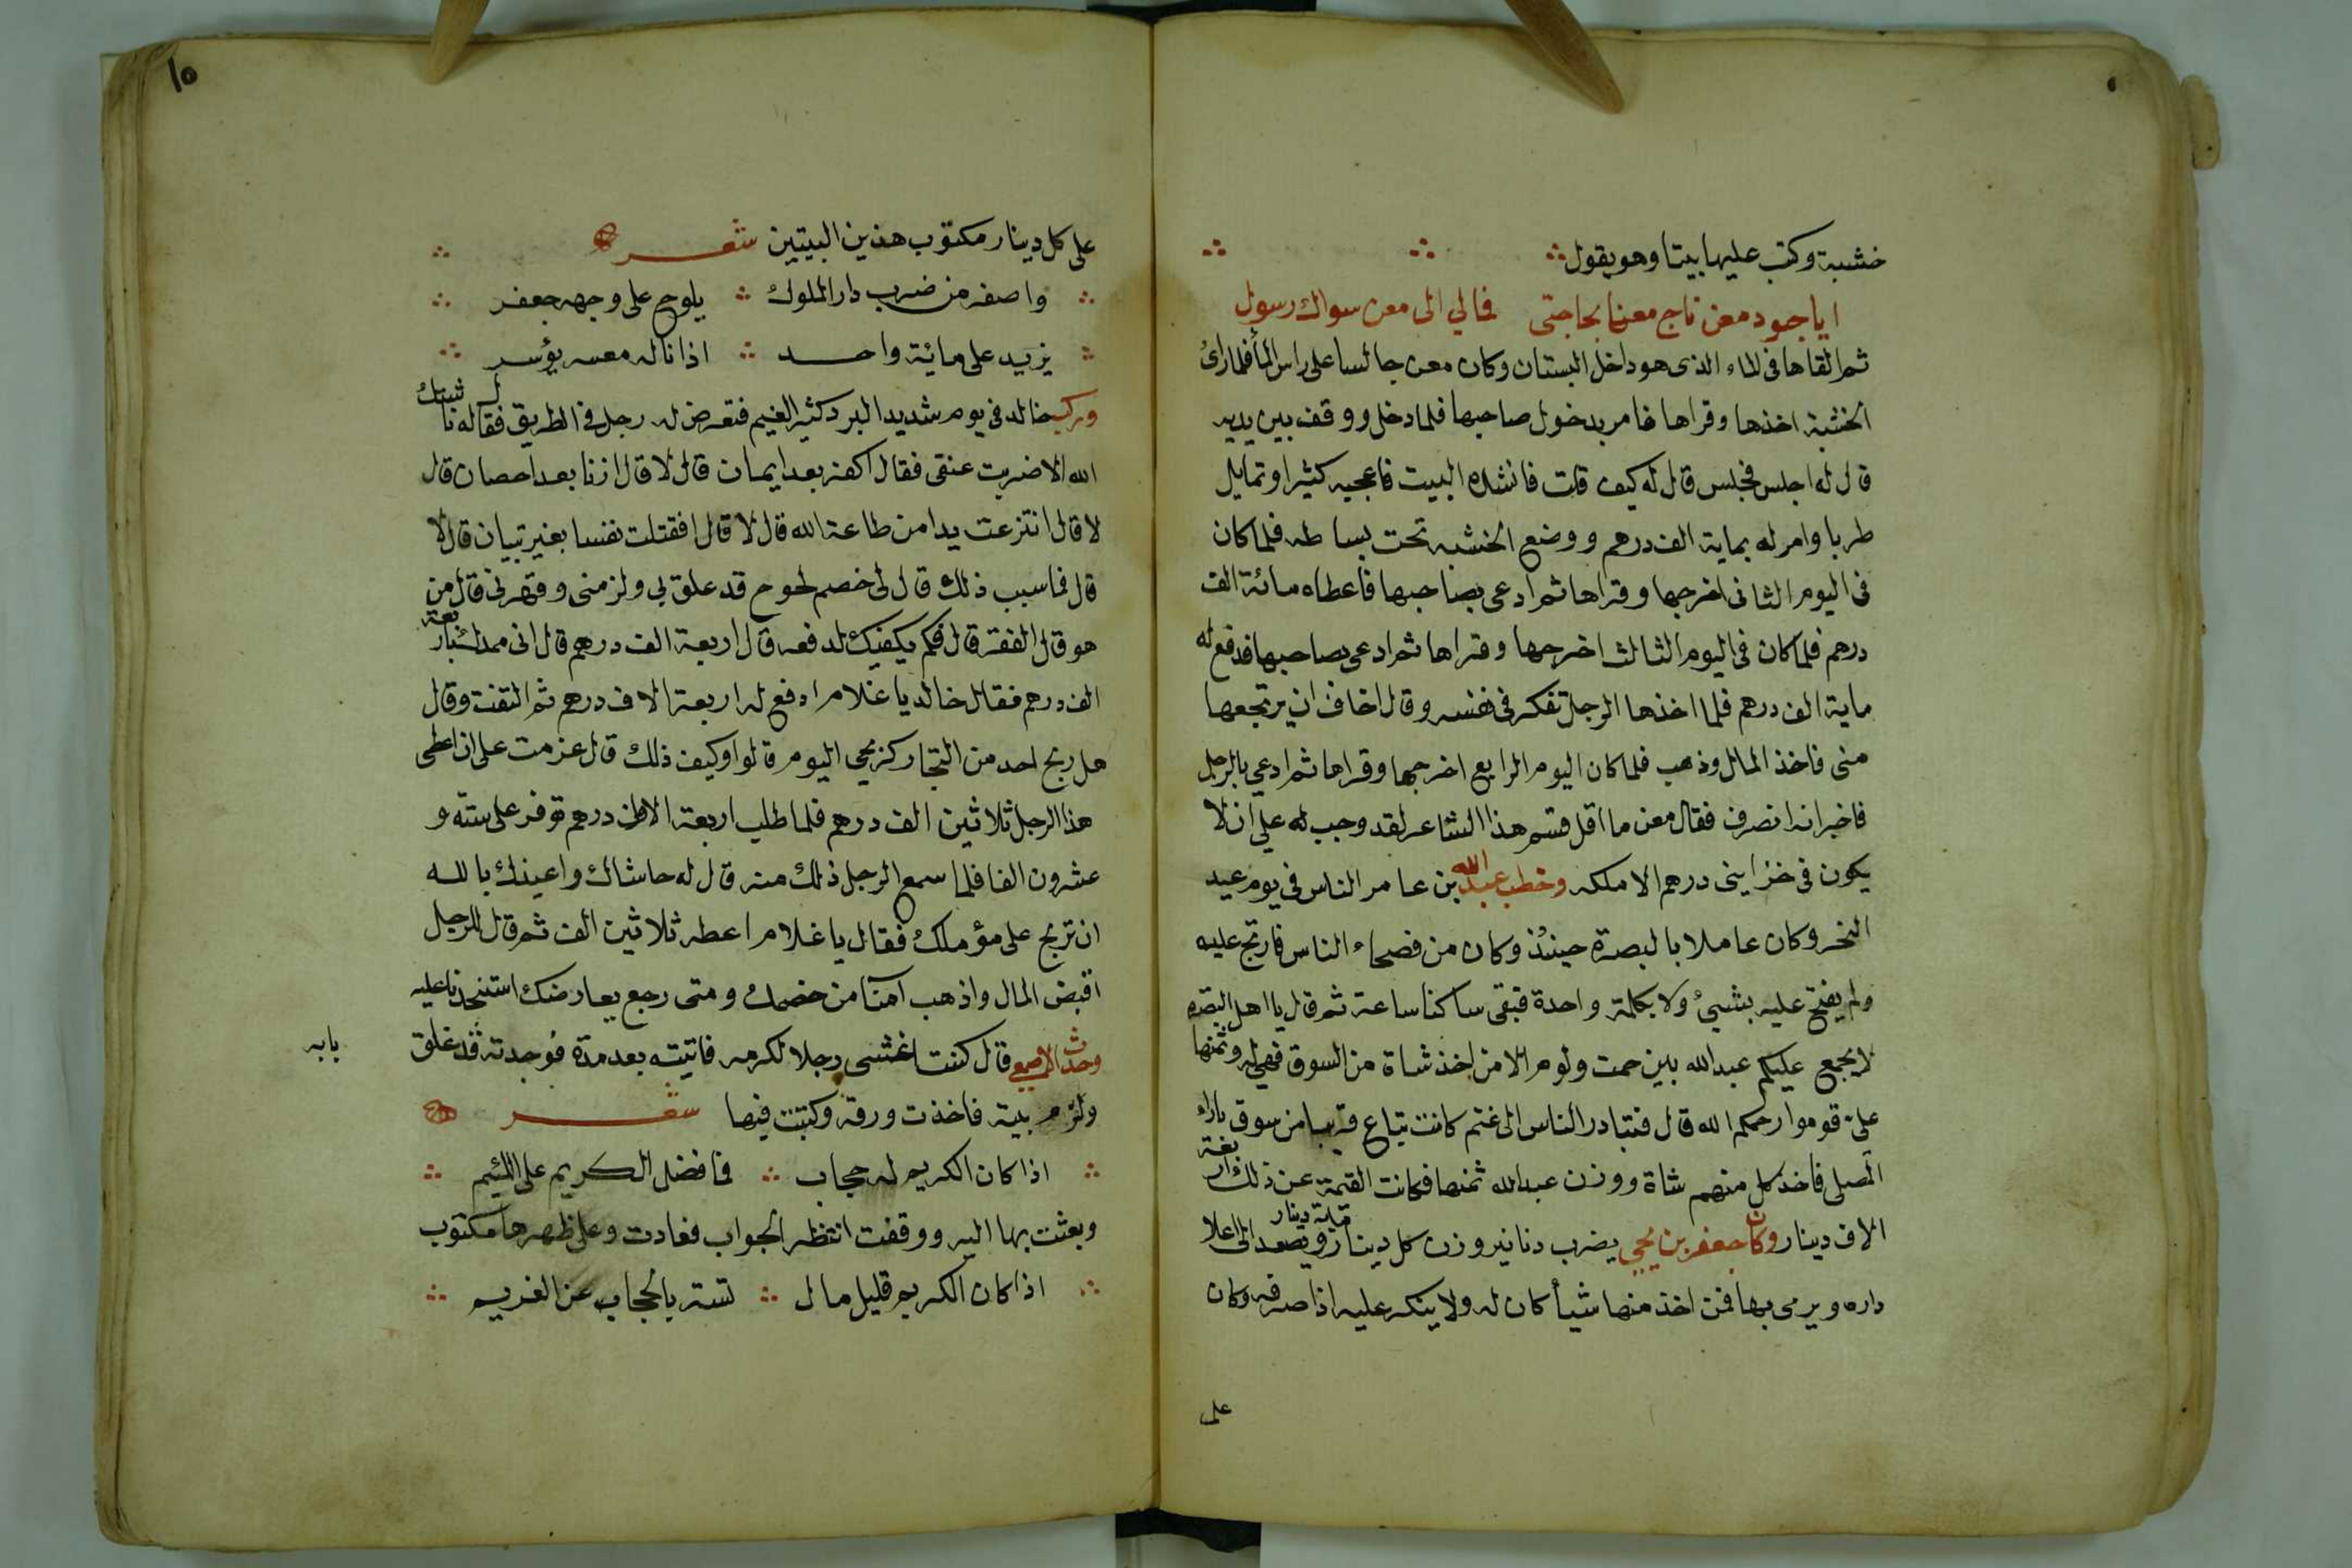 خشبة وكتب عليها بيتا وهو يقول
ايا جود معن ناج معنا بحاجتى فمالي الى معن سواك رسول
ثم القاها فى الماء الذى هو داخل البستان وكان معن جالسا على راس الماء فلما راى
الخشبة اخذها وقراها فامر بدخول صاحبها فلما دخل ووقف بين يديه
قال له اجلس فجلس قال له كيف قلت فانشده البيت فاعجبه كثيرا وتمايل
طربا وامر له بماية الف درهم ووضع الخشبه تحت بساطه فلما كان
فى اليوم الثانى اخرجها وقراها ثم ادعى بصاحبها فاعطاه مائة الف
درهم فلما كان فى اليوم الثالث اخرجها وقراها ثم ادعى بصاحبها فدفع له
ماية الف درهم فلما اخذها الرجل تفكر فى نفسه وقال اخاف ان يرتجعها
منى فاخذ المال وذهب فلما كان اليوم الرابع اخرجها وقراها ثم ادعي بالرجل
فاخبر انه انصرف فقال معن ما اقل قسم هذا الشاعر لقد وجب له على ان لا
يكون فى خزاينى درهم الا ملكه وخطب عبد الله بن عامر الناس فى يوم عيد
النحر وكان عاملا بالبصرة حينئذ وكان من فصحاء الناس فارتج عليه
ولم يفتح عليه بشيئ ولا بكلمة واحدة فبقى ساكنا ساعة ثم قال يا اهل البصره
لا يجمع عليكم عبد الله بين صمت ولوم الا من اخذ شاة من السوق فهي له وثمنها
علىّ قوموا رحمكم الله قال فتبادر الناس الى غنم كانت تباع قريبا من سوق باراء
المصلى فاخذ كل منهم شاة ووزن عبد الله ثمنها فكانت القيمة عن ذلك اربعة
الاف دينار وكان جعفر بن يحيى يضرب دنانير وزن كل دينار مايه دينار ويصعد الى اعلا
داره ويرمى بها فمن اخذ منها شيأ كان له ولا ينكر عليه اذا صرفه وكان
على
١٥
على كل دينار مكتوب هذين البيتين شعر
واصفر من ضرب دار الملوك يلوح على وجهه جعفر
يزيد على مائة واحد اذا ناله معسر يؤسر
وركب خالد فى يوم شديد البرد كثير الغيم فتعرض له رجل فى الطريق فقال له ناشدتك
الله الا ضربت عنقى فقال اكفر بعد ايمان قال لا قال ازنا بعد احصان قال
لا قال انتزعت يدا من طاعة الله قال لا قال افقتلت نفسا بغير تبيان قال لا
قال فما سبب ذلك قال لى خصم لحوح قد علق بي ولزمنى وقهرنى قال من
هو قال الفقر قال فكم يكفيك لدفعه قال اربعة الف درهم قال انى ممدك باربعة
الف درهم فقال خالد يا غلام ادفع له اربعة الاف درهم ثم التفت وقال
هل ربح احد من التجار كربحي اليوم قالوا وكيف ذلك قال عزمت على ان اعطى
هذا الرجل ثلاثين الف درهم فلما طلب اربعة الاف درهم توفر على ستة و
عشرون الفا فلما سمع الرجل ذلك منه قال له حاشاك واعيذك بالله
ان تربح على مؤملك فقال يا غلام اعطه ثلاثين الف ثم قال للرجل
اقبض المال واذهب آمنا من خصمك ومتى رجع يعارضك استنجدنا عليه
وحدث الاصمعي قال كنت اغشى رجلا لكرمه فاتيته بعد مدة فوجدته قد غلق بابه
ولزم بيته فاخذت ورقة وكتبت فيها شعر
اذا كان الكريم له حجاب فما فضل الكريم على اللئيم
وبعثت بها اليه ووقفت انتظر الجواب فعادت وعلى ظهرها مكتوب
اذا كان الكريم قليل مال تستر بالحجاب عن الغريم